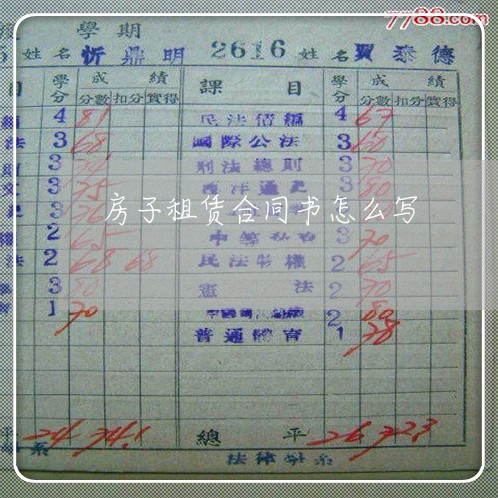 7788.com
學期
姓名 忻鼎明 2616 姓名 賈泰德
目 學分 成績 課目 學分 成績
分數 扣分 實得 分數 扣分 實得
4 81 民法債編 4 67
法 3 68 國際公法 3 60
3 刑法總則 3 70
3 75 西洋通史 3 80
3 76
房子租赁合同书怎么写
2 655 3 70
法 2 68 68 民法物權 2 65
3 80 憲法 2 70
1 70 2 80
普通體育 1 78
平 24 74.1 總平 26 72.3
系 法律學系